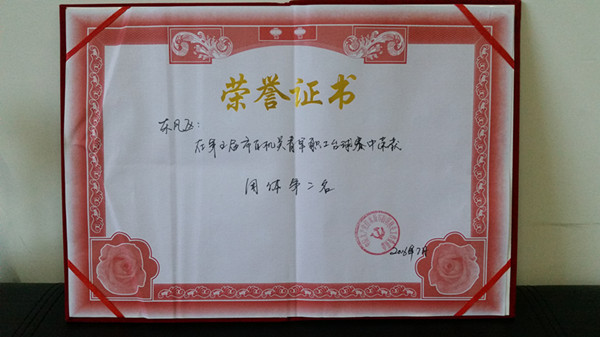 荣誉证书
东凡飞：
在第五届市直机关青年职工台球赛中荣获
团体第二名
2016年7月